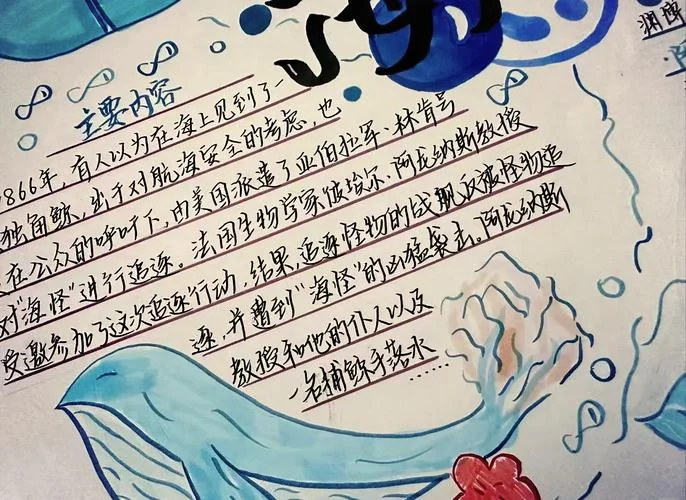 海
主要内容
866年,有人以为在海上见到了一
独角鲸,出于对航海安全的考虑,也
在公众的呼吁下,由美国派遣了亚伯拉军·林肯号
对“海怪”进行追逐。法国生物学家彼埃尔·阿龙纳斯教授
受邀参加了这次追逐行动,结果,追逐怪物的战舰反被怪物追
逐,并遭到“海怪”的凶猛袭击。阿龙纳斯
教授和他的仆人以及
一名捕鲸手落水……